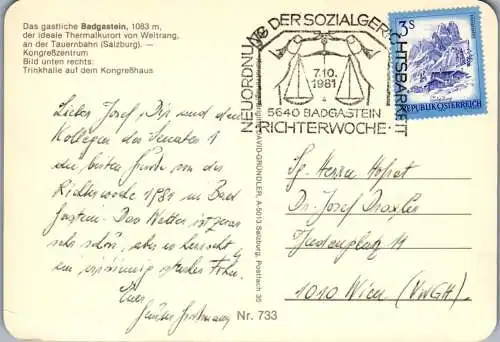 Das gastliche Badgastein, 1083 m,
der ideale Thermalkurort von Weltrang,
an der Tauernbahn (Salzburg). —
Kongreßzentrum
Bild unten rechts:
Trinkhalle auf dem Kongreßhaus
NEUORDNUNG DER SOZIALGERICHTSBARKEIT
7.10.
1981
5640 BADGASTEIN
RICHTERWOCHE
3S
REPUBLIK ÖSTERREICH
Lieber Josef, Dir und den
Kollegen des Senates 1
die besten Grüße von der
Richterwoche 1981 in Bad
Gastein. Das Wetter ist zwar
sehr schön, aber es herrscht
ein starker Föhn.
Euer
DAVID-GRÜNDLER, A-5013 Salzburg, Postfach 30
Sg. Herrn Hofrat
Dr. Josef Draxler
Judenplatz 11
1010 Wien (VwGH)
Nr. 733